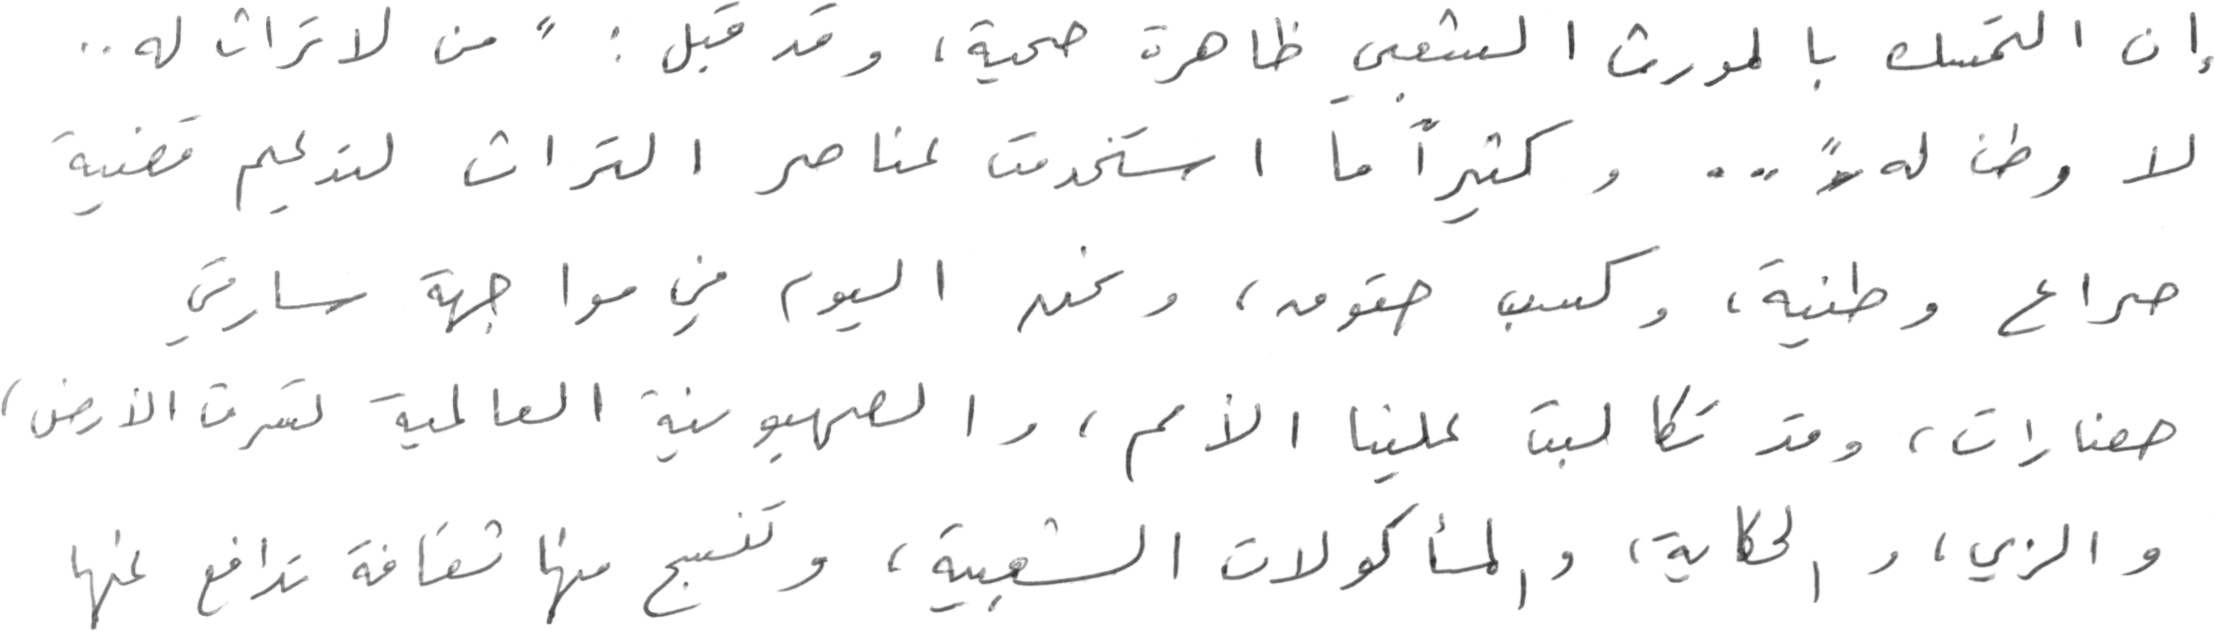 إن التمسك بالمورث الشعبي ظاهرة صحية، وقد قيل: "من لا تراث له..
لا وطن له" .. وكثيراً ما استخدمت عناصر التراث لتدعيم قضية
صراع وطنية، وكسب حقوق، ونحن اليوم في مواجهة سارقي
حضارات، وقد تكالبت علينا الأمم، والصهيونية العالمية لسرقت الأرض،
والزي، والحكاية، والمأكولات الشعبية، وتنسج منها ثقافة تدافع عنها